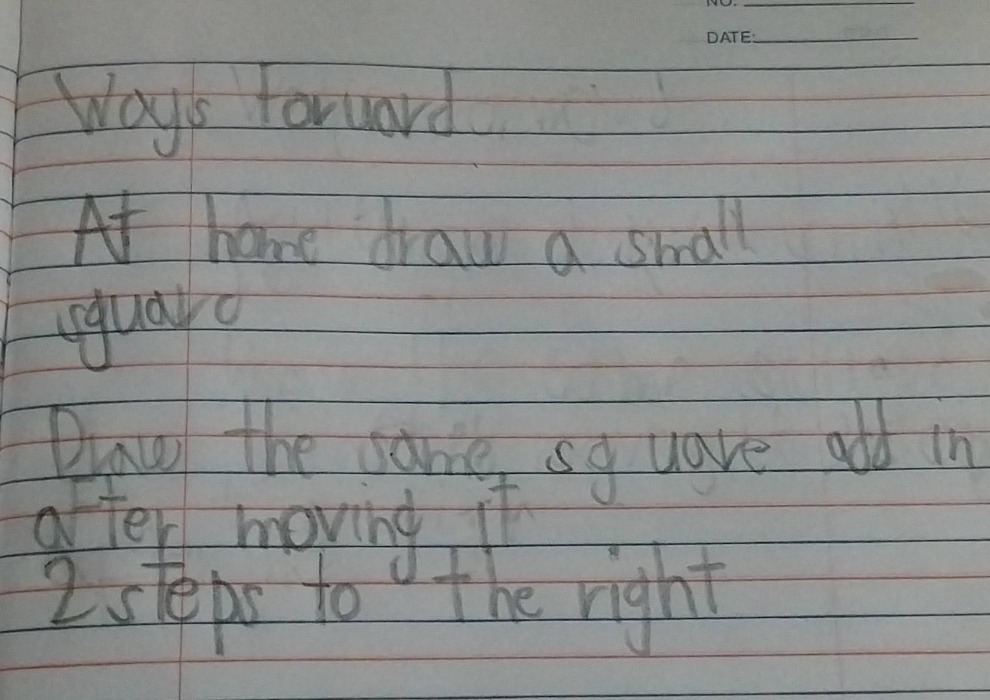 NO.
DATE:
Ways forward
At home draw a small
square
Draw the same square add in
after moving it
2 steps to the right